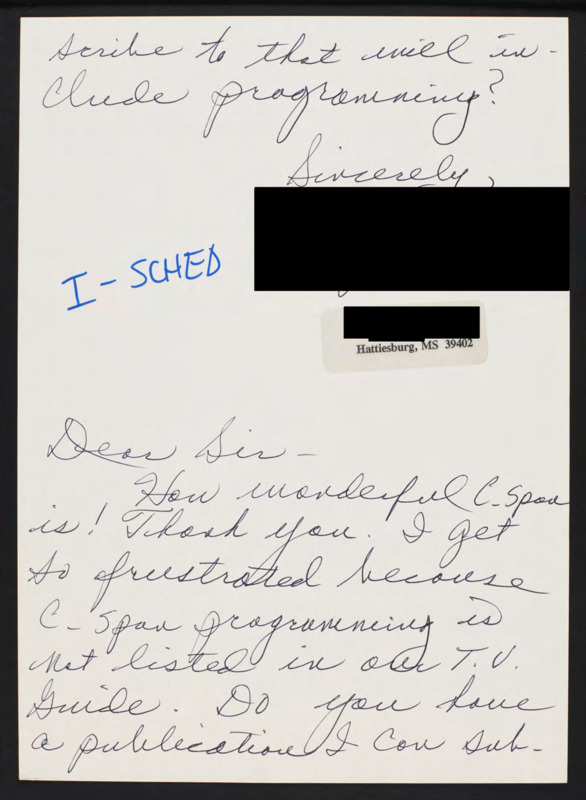 scribe to that will in-
clude programming?
Sincerely,
I - SCHED
Hattiesburg, MS 39402
Dear Sir -
How wonderful C-Span
is! Thank you. I get
so frustrated because
C-Span programming is
not listed in our T.V.
Guide. Do you have
a publication I can sub-